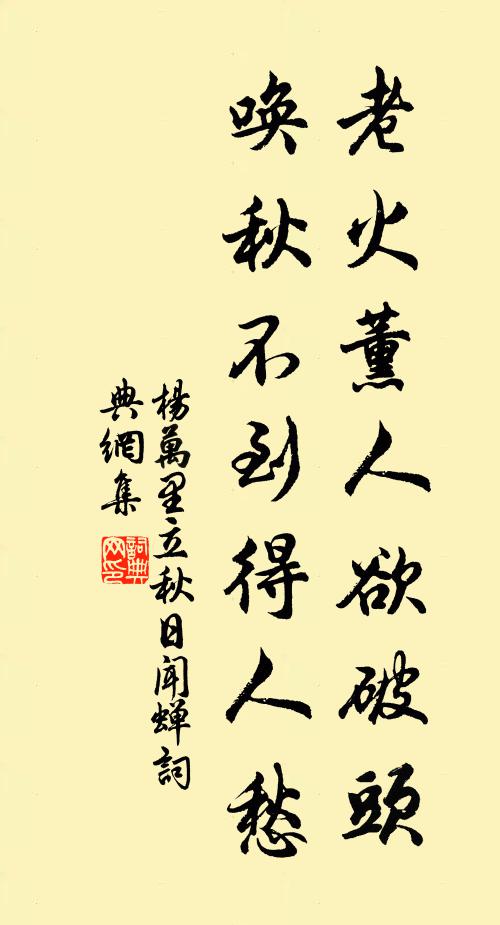 老火薰人欲破頭
喚秋不到得人愁
楊萬里立秋日聞蟬詞
典網集
詞典
网印